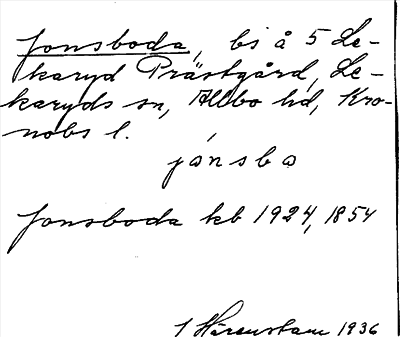 Jonsboda, bs å 5 Le-
karyd Prästgård, Le-
karyds sn, Allbo hd, Kro-
nobs l.
jónsba
Jonsboda kb 1924, 1854
I Härenstam 1936